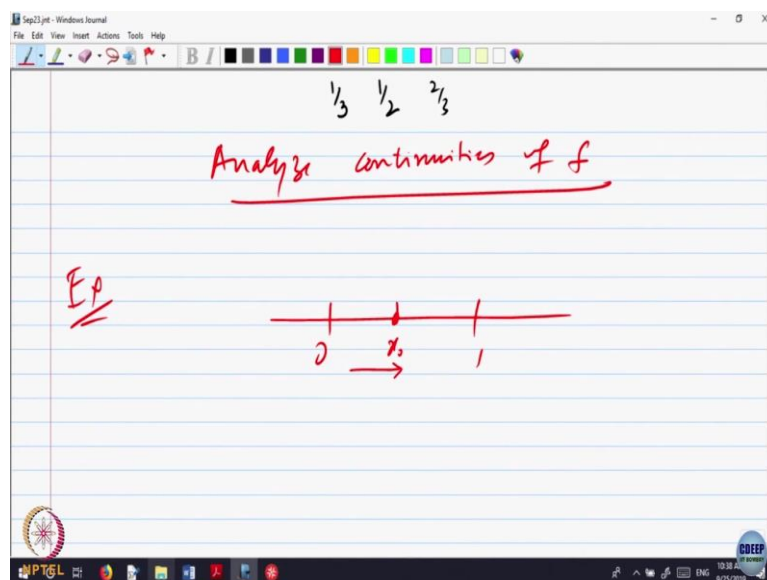 Sep23.jnt - Windows Journal
File Edit View Insert Actions Tools Help
B I
1/3 1/2 2/3
Analyze continuities of f
0 x₀ 1
NPTEL
CDEEP
IIT BOMBAY
ENG